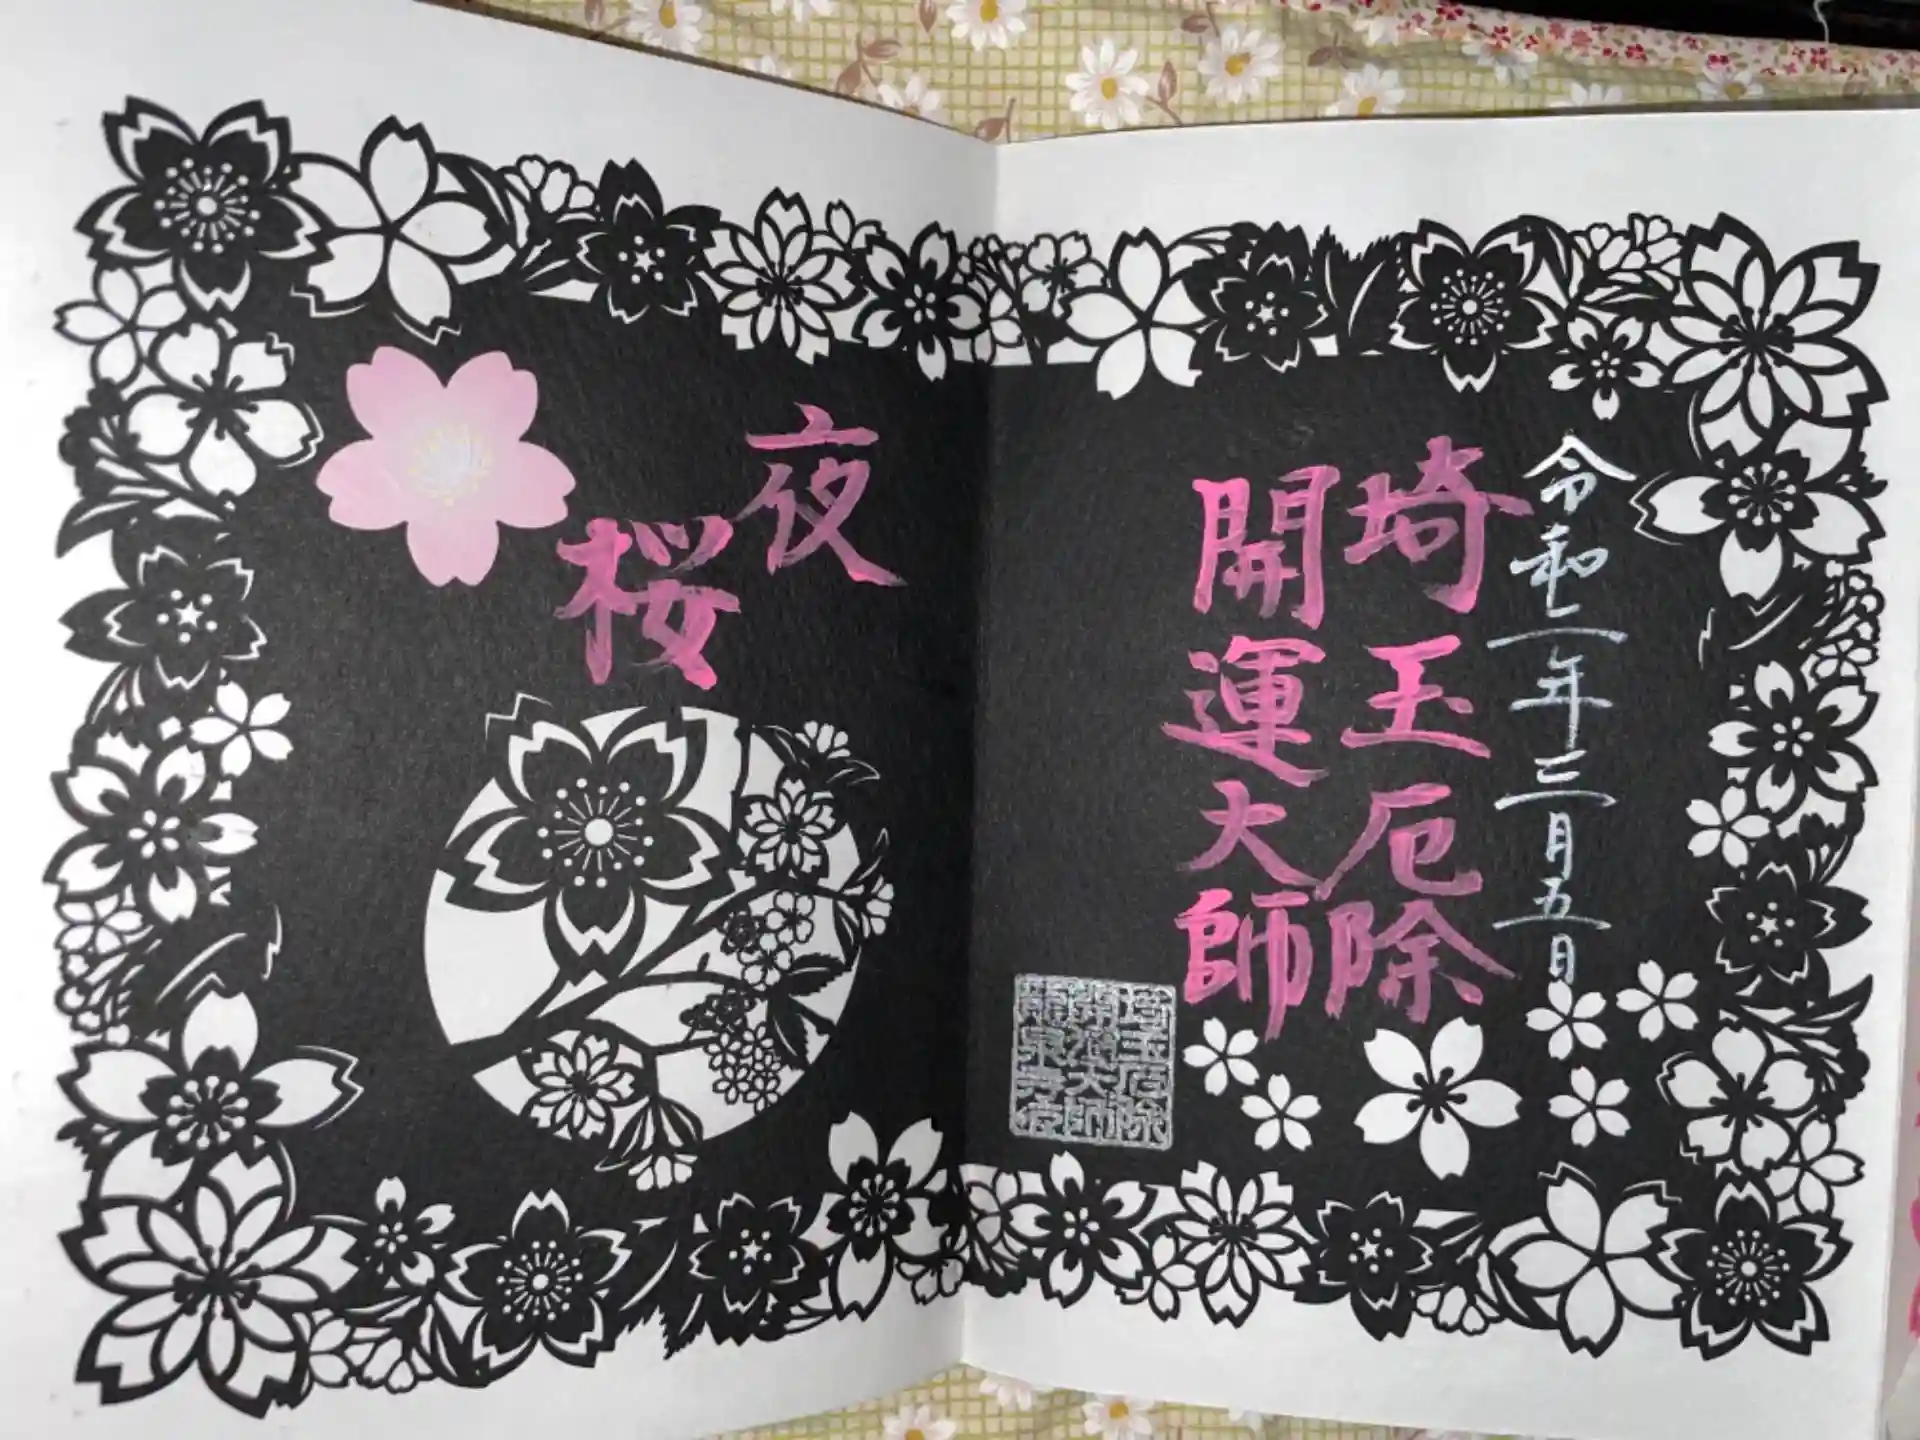 令和二年三月五日
埼玉厄除
開運大師
夜桜
埼玉厄除
開運大師
龍泉寺